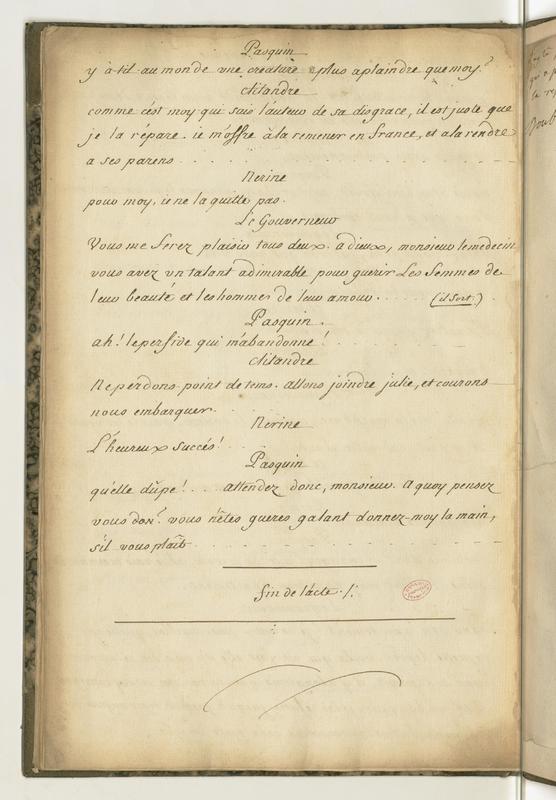 Pasquin
y à-t-il au monde une créature plus a plaindre que moy?
Clitandre
comme c'est moy qui suis l'auteur de sa disgrace, il est juste que
je la répare. ie m'offre à la remener en france, et a la rendre
a ses parens . . . . . . . . . . . .
Nerine
pour moy, ie ne la quitte pas.
Le Gouverneur
Vous me ferez plaisir tous deux. adieux, monsieur le medecin
vous avez un talant admirable pour guerir Les femmes de
leur beauté et les hommes de leur amour. . . . . . (il sort.)
Pasquin.
ah! le perfide qui m'abandonne! . . . . . .
Clitandre
Ne perdons point de tems. allons joindre julie, et courons
nous embarquer.
Nerine
L'heureux succés!
Pasquin
qu'elle dûpe! . . . attendez donc, monsieur. A quoy pensez
vous don? vous n'êtes gueres galant donnez-moy la main,
s'il vous plaît . . . . . . . . . .
fin de l'acte ./.